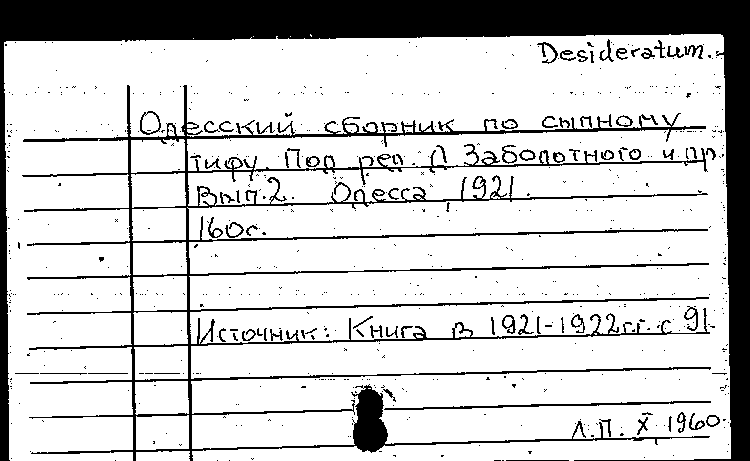 Desideratum.-
Одесский сборник по сыпному
тифу. Под ред. Д Заболотного и др
Вып. 2. Одесса, 1921.
160с.
Источник: Книга в 1921-1922г.г. с 91.
Л.П. X 1960.